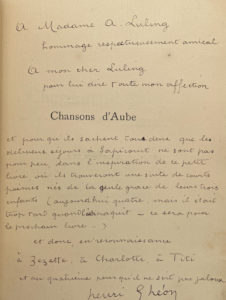 A Madame A. Luling
hommage respectueusement amical
A mon cher Luling
pour lui dire toute mon affection
Chansons d'Aube
et pour qu'ils sachent tous deux que les
délicieux séjours à ne sont pas
pour peu dans l'inspiration de ce petit
livre, où ils trouveront une suite de courts
poèmes nés de la seule grace de leurs trois
enfants (aujourd'hui quatre, mais il était
trop tard quand naquit — ce sera pour
le prochain livre.)
et donc, en reconnaissance
à Zezette, à Charlotte, à Titi
et au quatrième pour qu'il ne soit pas jaloux
Henri Ghéon